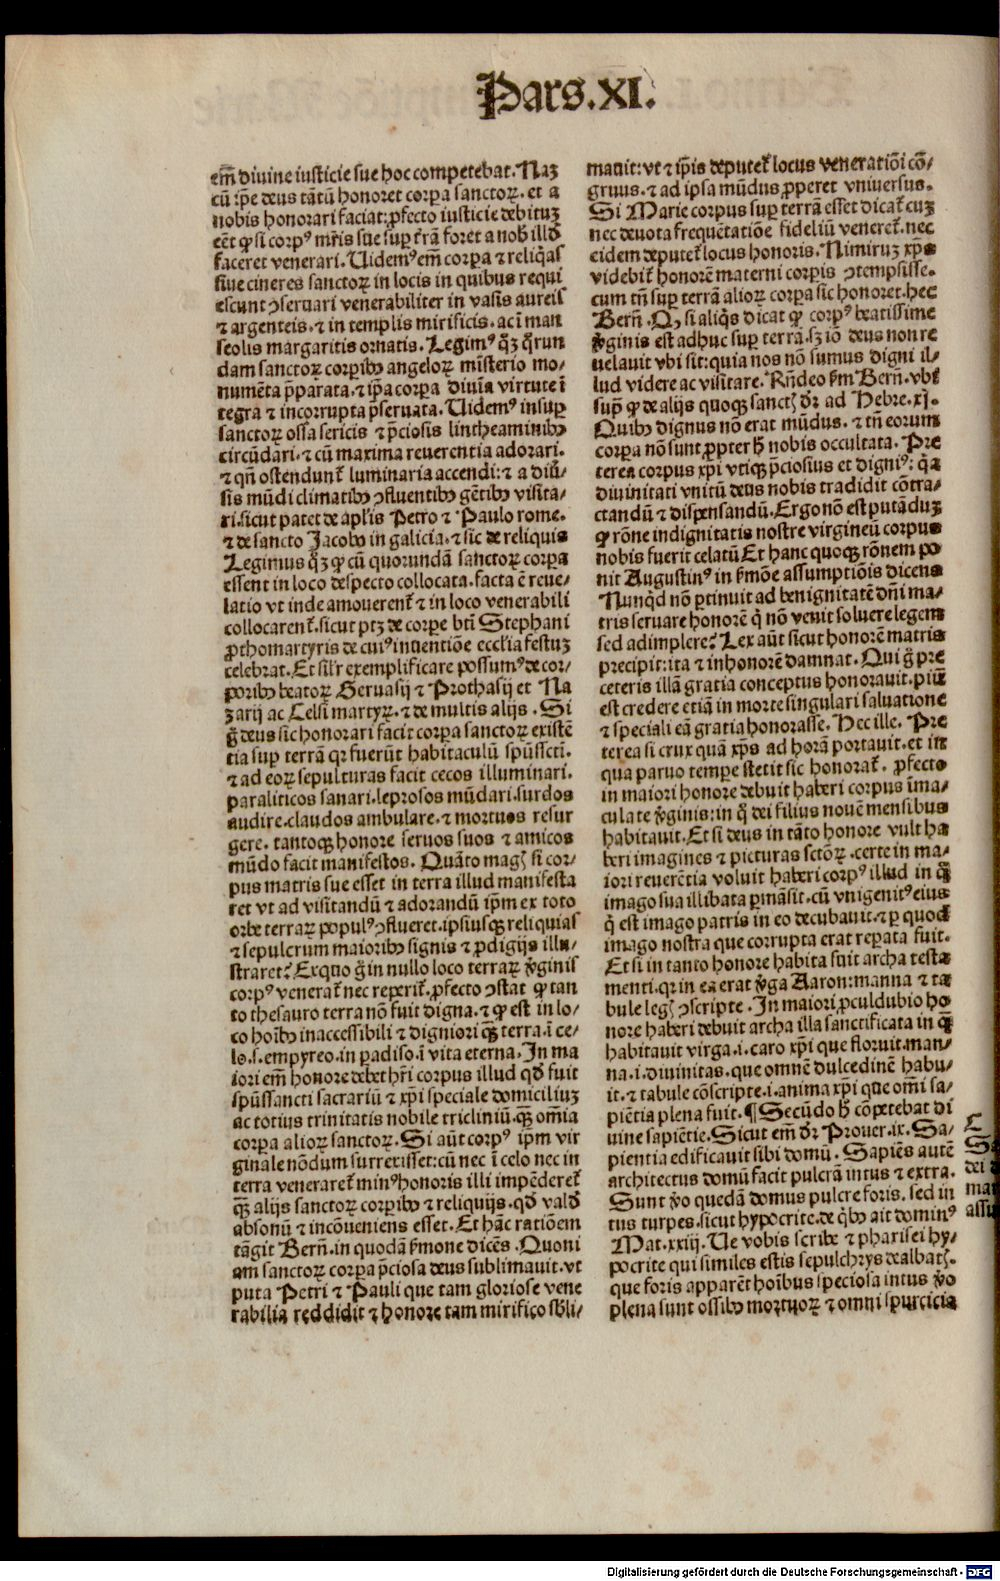 Pars.XI.
em̄ diuine iusticie sue hoc competebat. Naȝ
cū ip̄e deus tātū honoret corpa sanctoꝝ. et a
nobis honorari faciat: ꝓfecto iusticie debituȝ
eēt ꝙ si corpꝰ mr̄is sue suꝑ t̄rā foret a nob̄ illd̄
faceret venerari. Uidemꝰ em̄ corpa ⁊ reliq̄as
siue cineres sanctoꝝ in locis in quibus requi
escunt ꝯseruari venerabiliter in vasis aureis
⁊ argenteis. ⁊ in templis mirificis. ac ī mau
seolis margaritis ornatis. Legimꝰ q̄ȝ q̄run
dam sanctoꝝ corꝑibꝰ angeloꝝ mīsterio mo-
numēta p̄parata. ⁊ ip̄a corpa diuīa virtute ī
tegra ⁊ incorrupta p̄seruata. Uidemꝰ insuꝑ
sanctoꝝ ossa sericis ⁊ p̄ciosis lintheaminibꝰ
circūdari. ⁊ cū maxima reuerentia adorari.
⁊ qn̄ ostendunt̄ luminaria accendi: ⁊ a diū-
sis mūdi climatibꝰ ꝯfluentibꝰ gētibꝰ visita-
ri. sicut patet de apl̄is Petro ⁊ Paulo rome.
⁊ de sancto Jacobo in galicia. ⁊ sic de reliquis
Legimus q̄ȝ ꝙ cū quorundā sanctoꝝ corpa
essent in loco despecto collocata. facta ē reue-
latio vt inde amouerent̄ ⁊ in loco venerabili
collocarent̄. sicut ptȝ de corpe bt̄i Stephani
ꝓthomartyris de cuiꝰ inuentiōe eccl̄ia festuȝ
celebrat. Et sil̄r exemplificare possumꝰ de cor-
poribꝰ beatoꝝ Geruasij ⁊ Prothasij et Na
zarij ac Celsi martyꝝ. ⁊ de multis alijs. Si
g̊ deus sic honorari facit corpa sanctoꝝ existē
tia suꝑ terrā qr fuerūt habitaculū spūssctī.
⁊ ad eoꝝ sepulturas facit cecos illuminari.
paraliticos sanari. leprosos mūdari. surdos
audire. claudos ambulare. ⁊ mortuos resur
gere. tantoqȝ honore seruos suos ⁊ amicos
mūdo facit manifestos. Quāto magꝭ si cor-
pus matris sue esset in terra illud manifesta
ret vt ad visitandū ⁊ adorandū ip̄m ex toto
orbe terraꝝ populꝰ ꝯflueret. ipsiusqȝ reliquias
⁊ sepulcrum maioribꝰ signis ⁊ ꝓdigijs illu-
straret? Exquo g̊ in nullo loco terraꝝ v̄ginis
corpꝰ venerat̄ nec reperit̄. ꝓfecto ꝯstat ꝙ tan
to thesauro terra nō fuit digna. ⁊ ꝙ est in lo-
co hoībꝰ inaccessibili ⁊ digniori qȝ̄ terra. ī ce-
lo .s. empyreo. in padiso. ī vita eterna. In ma
iori em̄ honore debet hr̄i corpus illud qd̄ fuit
spūssancti sacrariū ⁊ xp̄i speciale domiciliuȝ
ac totius trinitatis nobile tricliniū. qȝ̄ om̄ia
corpa alioꝝ sanctoꝝ. Si aūt corpꝰ ip̄m vir
ginale nōdum surrexisset: cū nec ī celo nec in
terra venerareť minꝰ honoris illi impēdereť
qȝ̄ alijs sanctoꝝ corpibꝰ ⁊ reliquijs. qd̄ vald̄
absonū ⁊ incōueniens esset. Et hāc ratiōem
tāgit Bern̄. in quodā s̄mone dicēs. Quoni
am sanctoꝝ corpa p̄ciosa deus sublimauit. vt
puta Petri ⁊ Pauli que tam gloriose vene
rabilia reddidit ⁊ honore tam mirifico sbli-
mauit: vt ⁊ ip̄is deputeť locus veneratiōi cō-
gruus. ⁊ ad ipsa mūdus ꝓperet vniuersus.
Si Marie corpus suꝑ terrā esset dicať cuȝ
nec deuota frequētatiōe fideliū venereť. nec
eidem deputeť locus honoris. Nimiruȝ xp̄s
videbiť honorē materni corpis ꝯtempsisse.
cum tn̄ suꝑ terrā alioꝝ corpa sic honoret. hec
Bern̄. Qȝ si aliq̄s dicat ꝙ corpꝰ beatissime
v̄ginis est adhuc suꝑ terra. sȝ iō deus non re
uelauit vbi sit: quia nos nō sumus digni il-
lud videre ac visitare. Rn̄deo s̄m Bern̄. vbi
sup̄ ꝙ de alijs quoqȝ sanctꝭ dr̄ ad Hebre. xj.
Quibꝰ dignus nō erat mūdus. ⁊ tn̄ eorum
corpa nō sunt ꝓpter h̄ nobis occultata. Pre
terea corpus xp̄i vtiqȝ p̄ciosius et digniꝰ: q̄a
diuinitati vnitū deus nobis tradidit cōtra-
ctandū ⁊ dispensandū. Ergo nō est putāduȝ
ꝙ rōne indignitatis nostre virgineū corpus
nobis fuerit celatū Et hanc quoqȝ rōnem po
nit Augustinꝰ in s̄mōe assumptiōis dicens
Nunqd̄ nō ꝑtinuit ad benignitatē dn̄i ma-
tris seruare honorē q̄ nō venit soluere legem
sed adimplere? Lex aūt sicut honorē matris
precipit: ita ⁊ inhonorē damnat. Qui g̊ pre
ceteris illā gratia conceptus honorauit. piū
est credere etiā in morte singulari saluatione
⁊ speciali eā gratia honorasse. Hec ille. Pre
terea si crux quā xp̄s ad horā portauit. et in
qua paruo tempe stetit sic honorať. ꝓfecto
in maiori honore debuit haberi corpus īma-
culate v̄ginis: in q̄ dei filius nouē mensibus
habitauit. Et si deus in tāto honore vult ha
beri imagines ⁊ picturas sctōꝝ. certe in ma-
iori reuerētia voluit haberi corpꝰ illud in quo
imago sua illibata ꝑmāsit. cū vnigenitꝰ eius
q̄ est imago patris in eo decubauit. ⁊ ꝑ quod
imago nostra que corrupta erat repata fuit.
Et si in tanto honore habita fuit archa testa
menti. qr in ea erat v̄ga Aaron: manna ⁊ ta
bule legꝭ ꝯscripte. In maiori ꝓculdubio ho
nore haberi debuit archa illa sanctificata in qua
habitauit virga .i. caro xp̄i que floruit. man-
na .i. diuinitas. que omnē dulcedinē habu-
it. ⁊ tabule cōscripte .i. anima xp̄i que om̄i sa-
piētia plena fuit. ¶ Secūdo h̄ cōpetebat di
uine sapiētie. Sicut em̄ dr̄ Prouer. ix. Sa-
pientia edificauit sibi domū. Sapiēs autē
architectus domū facit pulcrā intus ⁊ extra.
Sunt v̄o quedā domus pulcre foris. sed in
tus turpes. sicut hypocrite. de qibꝰ ait dominꝰ
Mat. xxiij. Ue vobis scribe ⁊ pharisei hy-
pocrite qui similes estis sepulchrys dealbatꝭ.
que foris apparēt hoībus speciosa intus v̄o
plena sunt ossibꝰ mortuoꝝ ⁊ omni spurcicia
Digitalisierung gefördert durch die Deutsche Forschungsgemeinschaft - DFG